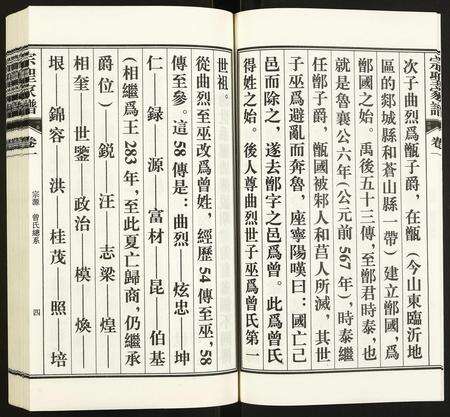 宗聖家譜
卷一
次子曲烈爲甑子爵,在甑(今山東臨沂地
區的郯城縣和蒼山縣一帶)建立鄫國,爲
鄫國之始。禹後五十三傳,至鄫君時泰,也
就是魯襄公六年(公元前567年),時泰繼
任鄫子爵,甑國被邾人和莒人所滅,其世
子巫爲避亂而奔魯,座寧陽嘆曰:國亡已
邑而除之,遂去鄫字之邑爲曾。此爲曾氏
得姓之始。後人尊曲烈世子巫爲曾氏第一
世祖。
從曲烈至巫改爲曾姓,經歷54傳至巫,58
傳至參。這58傳是:曲烈——炫忠——坤
仁——録——源——富材——昆——伯基
(相繼爲王283年,至此夏亡歸商,仍繼承
爵位)——鋭——汪——志梁——煌——
相奎——世鑒——政治——模——焕——
垠——錦容——洪——桂茂——照——培
宗源 曾氏總系
四
宗聖家譜
卷一